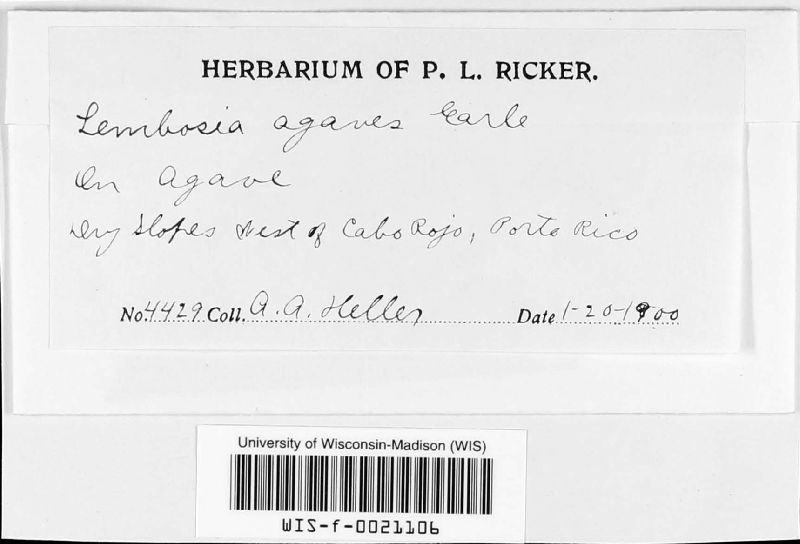 HERBARIUM OF P. L. RICKER.
Lembosia agaves Earle
On Agave
Dry slopes West of Cabo Rojo, Porto Rico
No. 4429 Coll. A. A. Heller Date 1-20-1900
University of Wisconsin-Madison (WIS)
WIS-f-0021106